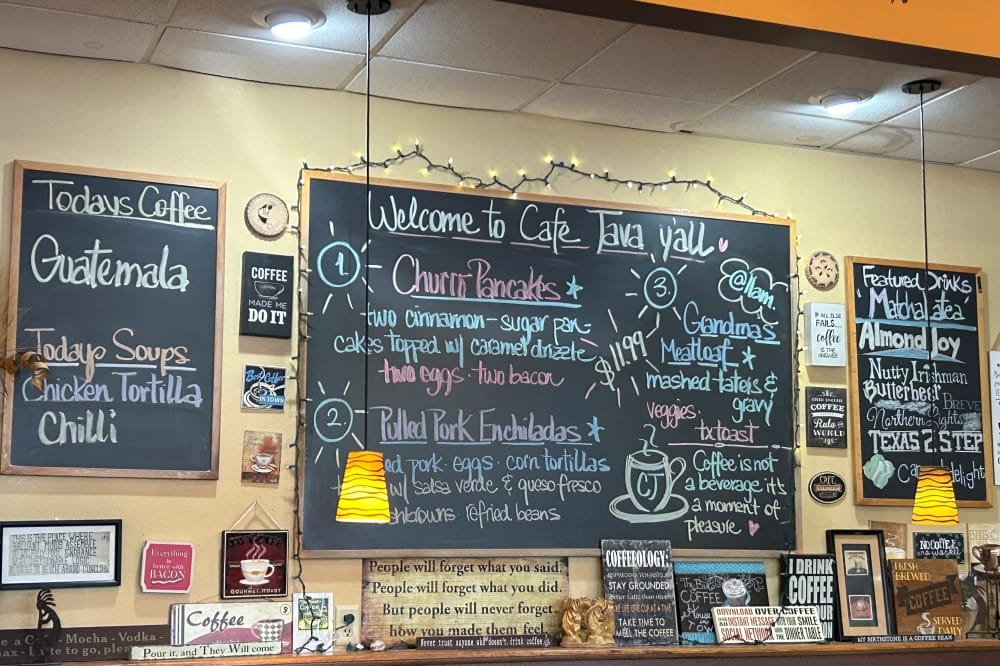 Todays Coffee
Guatemala
Todays Soups
Chicken Tortilla
Chilli
COFFEE
MADE ME
DO IT
Best Coffee
IN TOWN
Welcome to Cafe Java y'all
1.
Churro Pancakes
two cinnamon-sugar pan-
cakes topped w/ caramel drizzle
two eggs two bacon
2.
Pulled Pork Enchiladas
ed pork · eggs · corn tortillas
w/ salsa verde & queso fresco
hbrowns refried beans
3.
@11am.
Grandmas
Meatloaf
$11.99
mashed taters &
gravy
veggies.
txtoast
CJ
Coffee is not
a beverage it's
a moment of
pleasure
IF ALL ELSE
FAILS...
COFFEE
IS THE
ANSWER
COFFEE
Rule the
WORLD
CAFE
Featured Drinks
Matcha tea
Almond Joy
Nutty Irishman
Butterbeer
BREVE
Northern Lights
TEXAS 2 STEP
delight
THIS IS THE PLACE WHERE
Everything
is better with
BACON
JAVA CAFE
GOURMET ROAST
Coffee
Pour it, and They Will come
e a Coffee Mocha - Vodka -
Latte to go, please
People will forget what you said.
People will forget what you did.
But people will never forget
how you made them feel.
Never trust anyone who doesn't drink coffee
COFFEEOLOGY:
STAY GROUNDED
TAKE LIFE ONE CUP AT A TIME
TAKE TIME TO
SMELL THE COFFEE
DOWNLOAD OVER COFFEE
SOCIAL NETWORK
WITH YOUR SMILE
THE DINNER TABLE
I DRINK
COFFEE
NO COFFEE
no worky
FRESH
BREWED
COFFEE
SERVED
DAILY
MY BIRTHSTONE IS A COFFEE BEAN